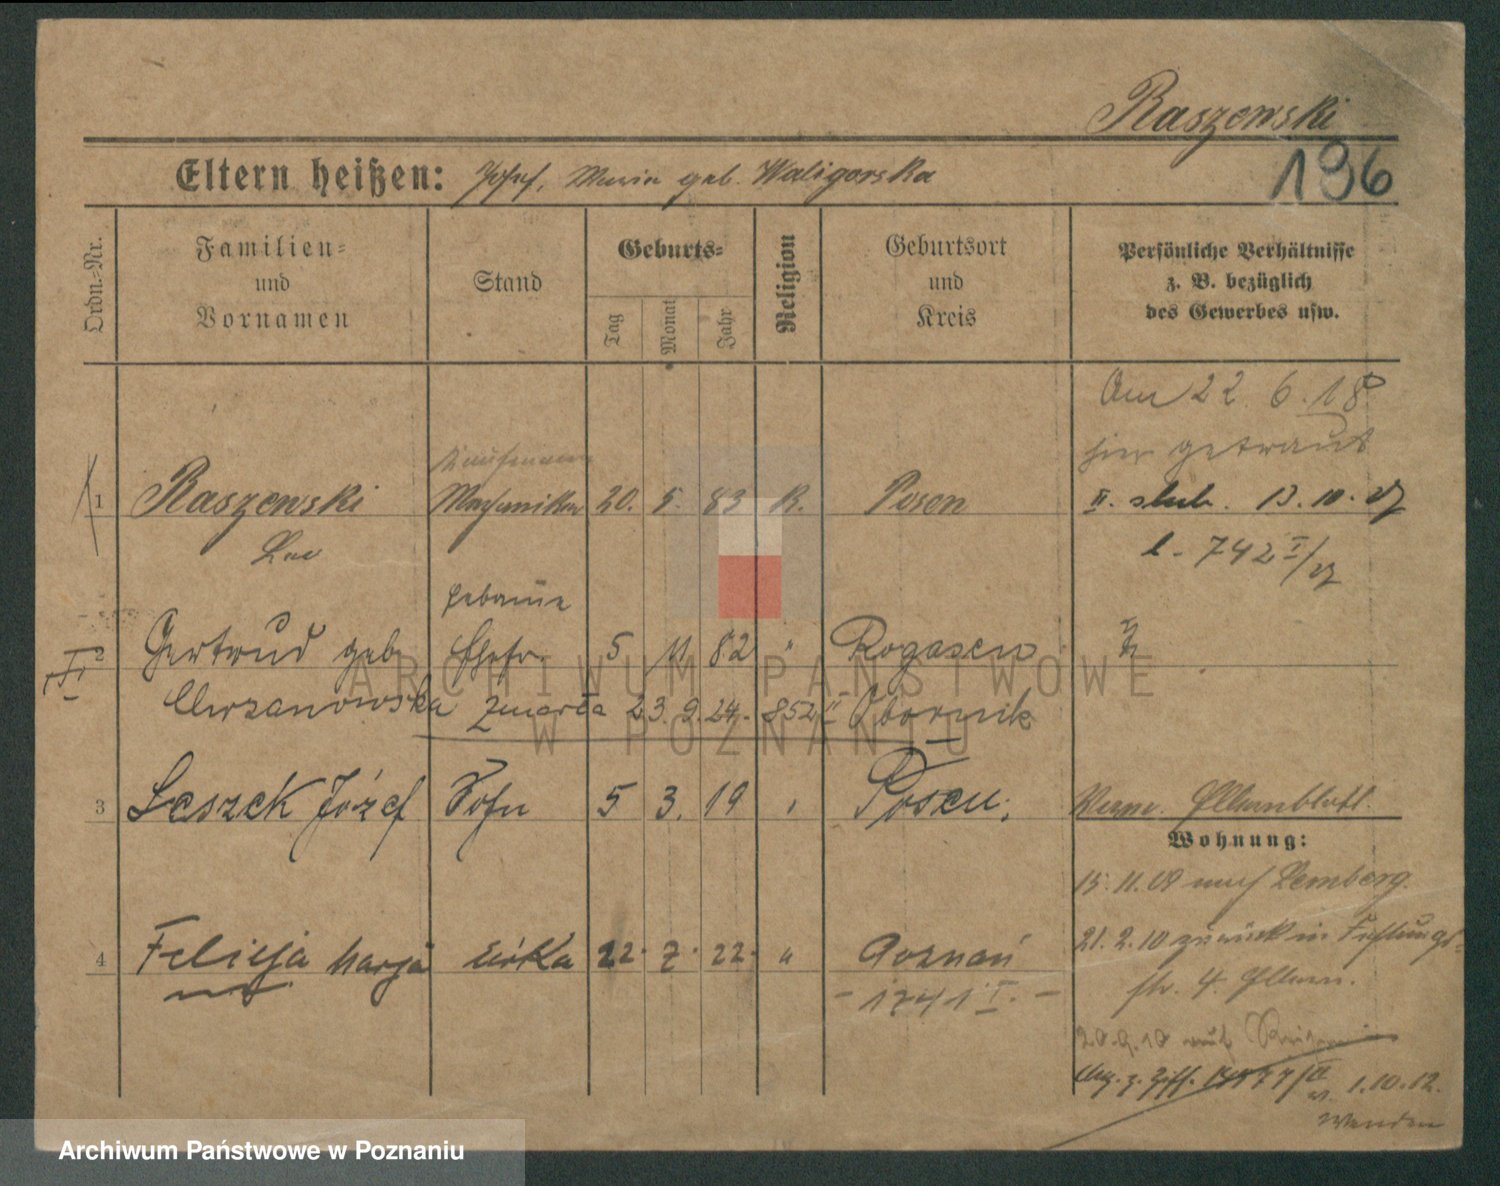 Raszewski
196
Eltern heißen: Josef, Maria geb. Waligorska
Ordn.-Nr.
Familien-
und
Vornamen
Stand
Geburts-
Tag
Monat
Jahr
Religion
Geburtsort
und
Kreis
Persönliche Verhältnisse
z. B. bezüglich
des Gewerbes usw.
Am 22 6. 18
hier getraut
Kaufmann
1 Raszewski Mechaniker 20. 5. 83 R. Posen II. slub. 13. 10. 27
Leo
l. 742 I/27
2 Gertrud geb. Ehefr. 5 11 82 " Rogasen
zmarła 23. 9. 24. 852 II Obornik
3 Leszek Józef Sohn 5 3. 19 " Posen.
Elternblatt.
Wohnung:
15. 11. 09 nach Lemberg.
4 Felicja Marja córka 22. 7. 22. " Poznań
21. 2. 10 zurück in
- 1741 I. -
str. 4. Eltern.
20.9.10 nach
1.10.12.
wenden
ARCHIWUM PAŃSTWOWE
W POZNANIU
Archiwum Państwowe w Poznaniu